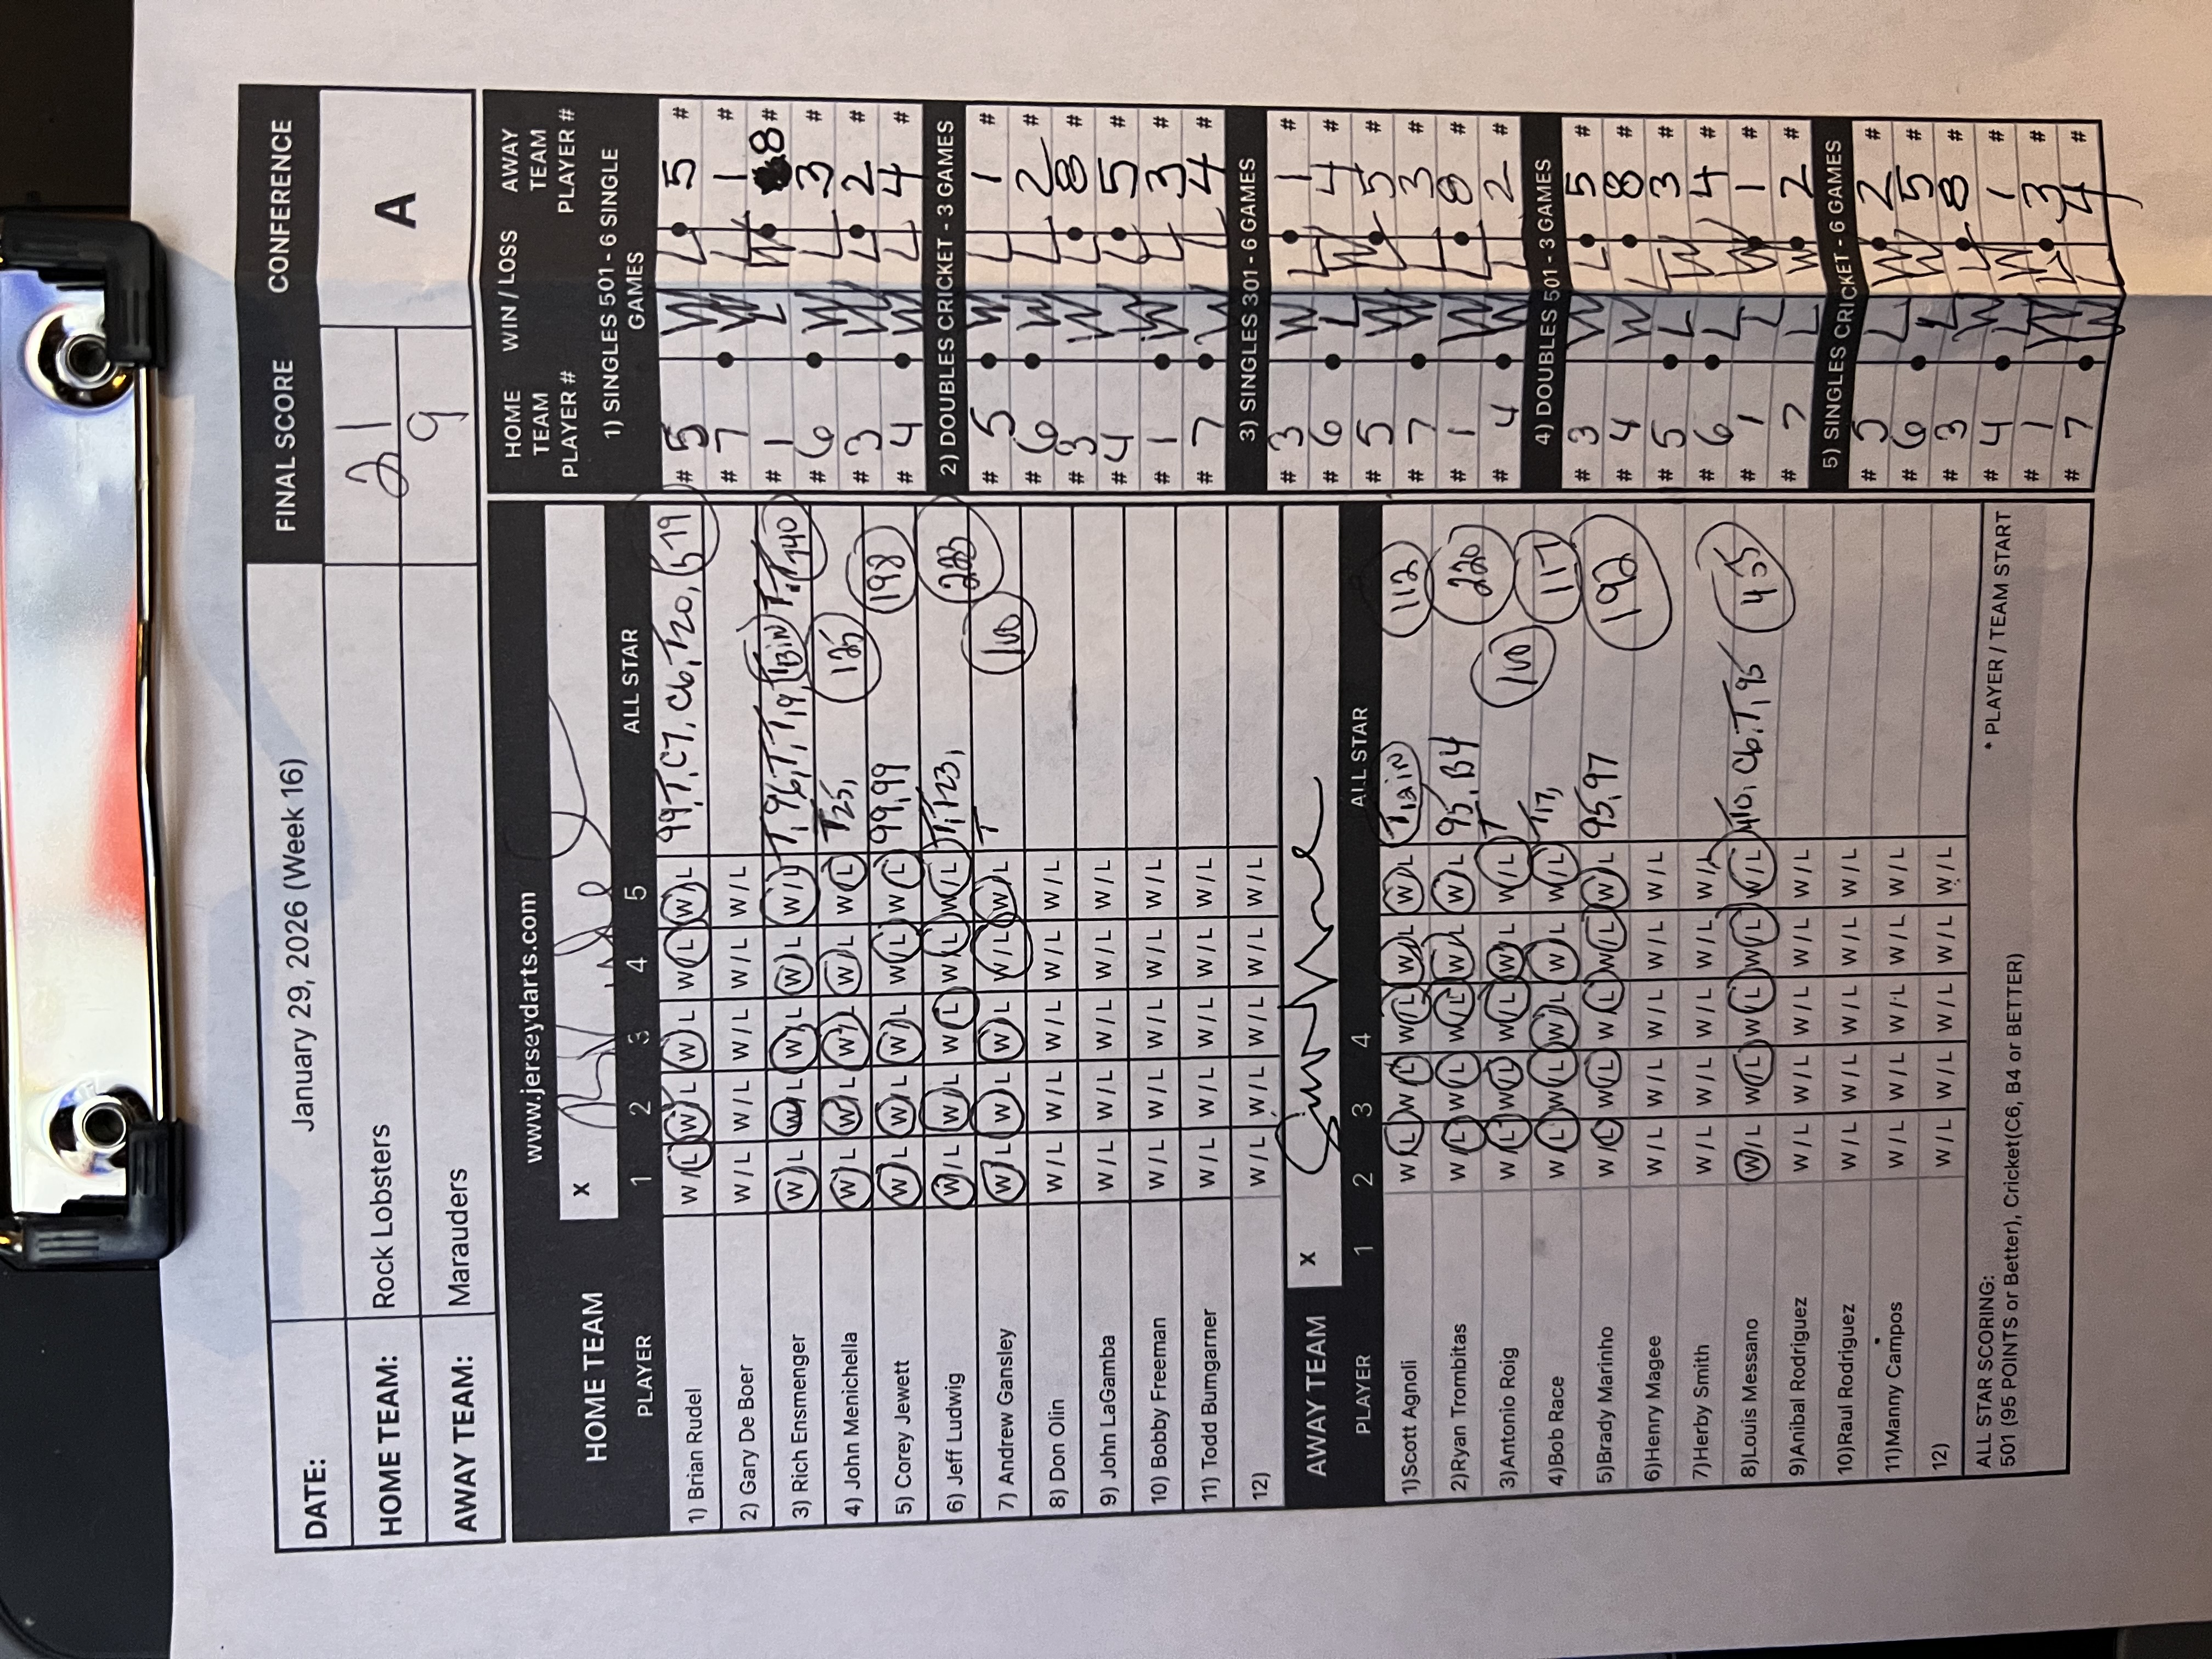 DATE: January 29, 2026 (Week 16) FINAL SCORE CONFERENCE
HOME TEAM: Rock Lobsters 21 A
AWAY TEAM: Marauders 9
www.jerseydarts.com
HOME TEAM x
PLAYER 1 2 3 4 5 ALL STAR
1) Brian Rudel W/L W/L W/L W/L W/L 99, T, C7, C6, T20, 579
2) Gary De Boer W/L W/L W/L W/L W/L
3) Rich Ensmenger W/L W/L W/L W/L W/L T, 96, T, T, T19, T, T 740
4) John Menichella W/L W/L W/L W/L W/L T25, 125
5) Corey Jewett W/L W/L W/L W/L W/L 99, 99 198
6) Jeff Ludwig W/L W/L W/L W/L W/L T, 123, 223
7) Andrew Gansley W/L W/L W/L W/L W/L T 100
8) Don Olin W/L W/L W/L W/L W/L
9) John LaGamba W/L W/L W/L W/L W/L
10) Bobby Freeman W/L W/L W/L W/L W/L
11) Todd Bumgarner W/L W/L W/L W/L W/L
12) W/L W/L W/L W/L W/L
AWAY TEAM x
PLAYER 1 2 3 4 ALL STAR
1)Scott Agnoli W/L W/L W/L W/L W/L 112
2)Ryan Trombitas W/L W/L W/L W/L W/L 95, B4 220
3)Antonio Roig W/L W/L W/L W/L W/L T 100
4)Bob Race W/L W/L W/L W/L W/L T17, 117
5)Brady Marinho W/L W/L W/L W/L W/L 95, 97 192
6)Henry Magee W/L W/L W/L W/L W/L
7)Herby Smith W/L W/L W/L W/L W/L
8)Louis Messano W/L W/L W/L W/L W/L C6, T, 95 455
9)Anibal Rodriguez W/L W/L W/L W/L W/L
10)Raul Rodriguez W/L W/L W/L W/L W/L
11)Manny Campos W/L W/L W/L W/L W/L
12) W/L W/L W/L W/L W/L
ALL STAR SCORING: * PLAYER / TEAM START
501 (95 POINTS or Better), Cricket(C6, B4 or BETTER)
HOME TEAM PLAYER # WIN / LOSS AWAY TEAM PLAYER #
1) SINGLES 501 - 6 SINGLE GAMES
# 5 W L 5 #
# 7 W L 1 #
# 1 L W 8 #
# 6 W L 3 #
# 3 W L 2 #
# 4 W L 4 #
2) DOUBLES CRICKET - 3 GAMES
# 5 W L 1 #
# 6 W L 2 #
# 3 W L 8 #
# 4 W L 5 #
# 1 W L 3 #
# 7 W L 4 #
3) SINGLES 301 - 6 GAMES
# 3 W L 1 #
# 6 L W 4 #
# 5 W L 5 #
# 7 W L 3 #
# 1 W L 8 #
# 4 W L 2 #
4) DOUBLES 501 - 3 GAMES
# 3 W L 5 #
# 4 W L 8 #
# 5 L W 3 #
# 6 L W 4 #
# 1 L W 1 #
# 7 L W 2 #
5) SINGLES CRICKET - 6 GAMES
# 5 L W 2 #
# 6 L W 5 #
# 3 W L 8 #
# 4 L W 1 #
# 1 W L 3 #
# 7 W L 4 #